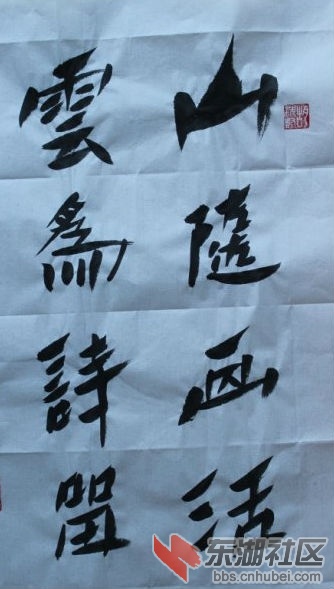 山隨画活
雲為詩留
东湖社区
bbs.cnhubei.com